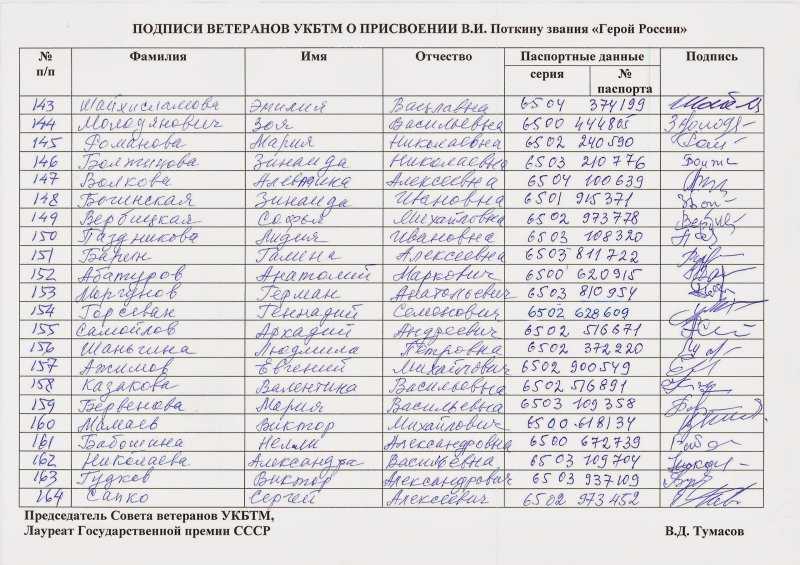 ПОДПИСИ ВЕТЕРАНОВ УКБТМ О ПРИСВОЕНИИ В.И. Поткину звания «Герой России»
№ п/п Фамилия Имя Отчество Паспортные данные Подпись
серия № паспорта
143 Шайхисламова Эмилия Вацлавна 6504 374199
144 Молодянович Зоя Васильевна 6500 444805
145 Романова Мария Николаевна 6502 240590
146 Болтикова Зинаида Николаевна 6503 210776
147 Волкова Алевтина Алексеевна 6504 100639
148 Богинская Зинаида Ивановна 6501 915371
149 Вербицкая Софья Михайловна 6502 973778
150 Паздникова Лидия Ивановна 6503 108320
151 Галина Алексеевна 6503 811722
152 Абатуров Анатолий Маркович 6500 620915
153 Ларгунов Герман Анатольевич 6503 810954
154 Геннадий Семёнович 6502 628609
155 Самойлов Аркадий Андреевич 6502 516671
156 Шаньгина Людмила Петровна 6502 372220
157 Ажимов Евгений Михайлович 6502 900549
158 Казакова Валентина Васильевна 6502 516891
159 Мария Васильевна 6503 109358
160 Мамаев Виктор Михайлович 6500 618134
161 Бабошина Нелли Александровна 6500 672739
162 Николаева Александра Васильевна 6503 109704
163 Гудков Виктор Александрович 6503 937109
164 Сапко Сергей Алексеевич 6502 973452
Председатель Совета ветеранов УКБТМ,
Лауреат Государственной премии СССР В.Д. Тумасов